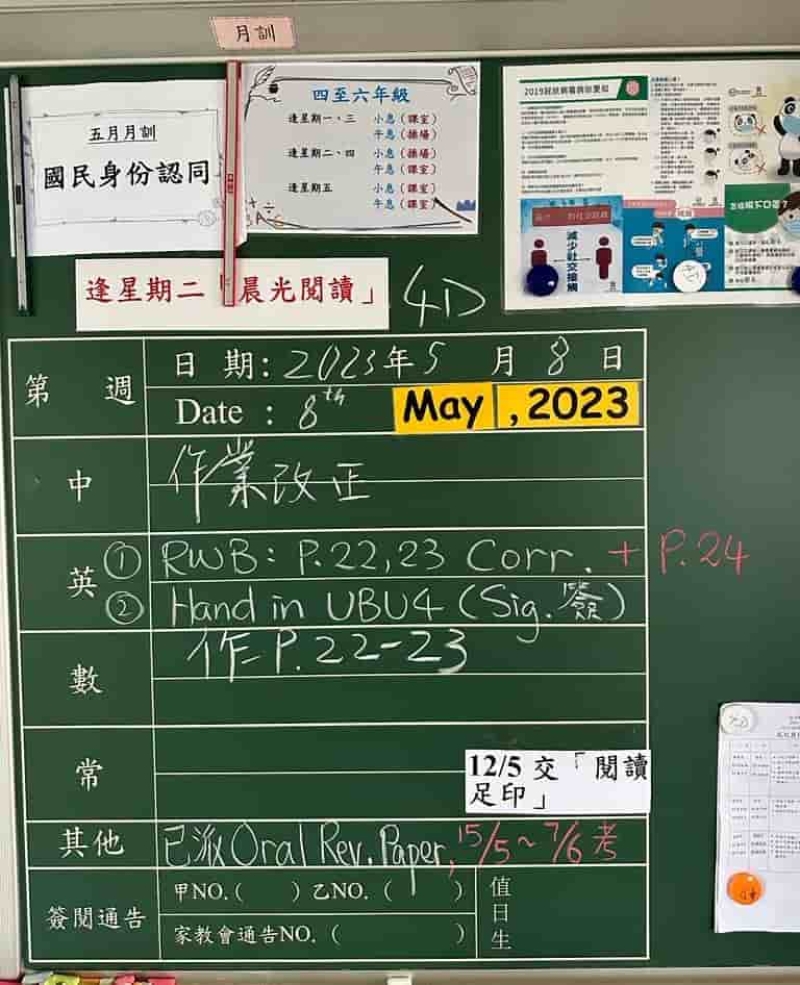 月訓
五月月訓
國民身份認同
四至六年級
逢星期一、三 小息（課室）
午息（操場）
逢星期二、四 小息（操場）
午息（課室）
逢星期五 小息（課室）
午息（課室）
2019冠狀病毒病你要知
減少社交接觸
逢星期二「晨光閱讀」
4D
第 週
日 期: 2023年5 月 8 日
Date : 8th May , 2023
中 作業改正
英 ① RWB: P.22,23 Corr. + P.24
② Hand in UBU4 (Sig. 簽)
數 作P.22-23
常
12/5 交「閱讀
足印」
其他 已派Oral Rev. Paper, 15/5~7/6考
簽閱通告 甲NO.( ) 乙NO. ( )
家教會通告NO. ( )
值日生